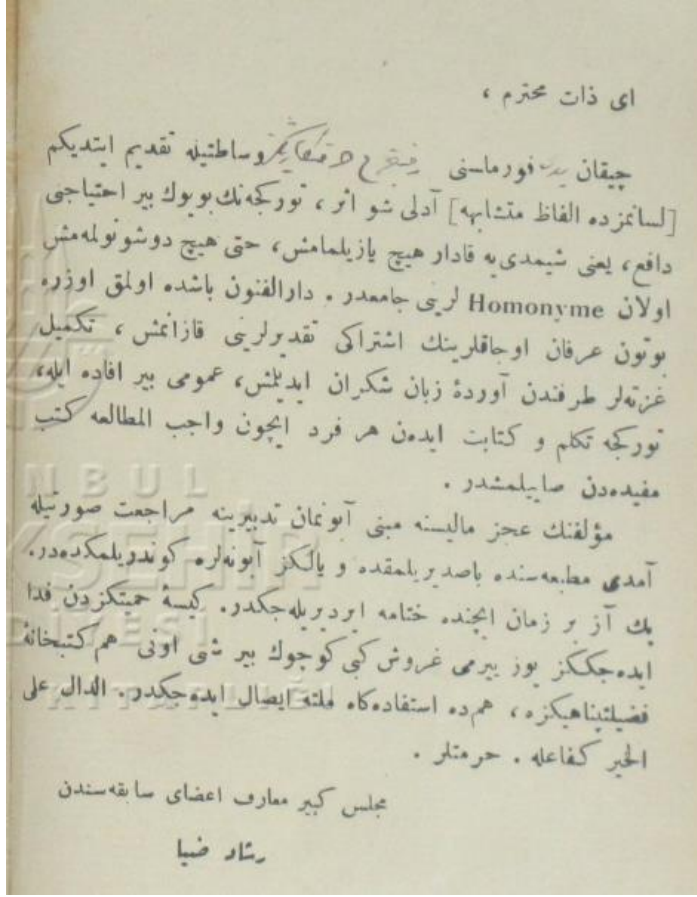 ای ذات محترم ،
چیقان فورماسنی وساطتیله تقدیم ایتدیکم
[لسانمزده الفاظ متشابهه] آدلی شو اثر ، تورکجه‌نك بویوك بیر احتیاجنی
دافع ، یعنی شیمدی‌یه قادار هیچ یازیلمامش ، حتی هیچ دوشونولمه‌مش
اولان Homonyme لرینی جامعدر . دارالفنون باشده اولمق اوزره
بوتون عرفان اوجاقلرینك اشتراکی تقدیرلرینی قازانمش ، تکمیل
غزته‌لر طرفندن آوردۀ زبان شکران ایدیلمش ، عمومی بیر افاده ایله ،
تورکجه تکلم و کتابت ایده‌ن هر فرد ایچون واجب المطالعه کتب
مفیده‌دن صاییلمشدر .
مؤلفنك عجز مالیسنه مبنی آبونمان تدبیرینه مراجعت صورتیله
آمدی مطبعه‌سنده باصدیریلمقده و یالکز آبونه‌لره کوندریلمکده‌در.
پك آز بر زمان ایچنده ختامه ایردیریله‌جکدر. کیسۀ حمیتکزدن فدا
ایده‌جککز یوز ییرمی غروش کبی کوچوك بیر شی اونی هم کتبخانۀ
فضیلتپناهیکزه ، هم‌ده استفاده‌کاه ملته ایصال ایده‌جکدر . الدال علی
الخیر کفاعله . حرمتلر .
مجلس کبیر معارف اعضای سابقه‌سندن
رشاد ضیا
ANBUL
KSEHİR
DİYESİ
KİTAPLIĞI